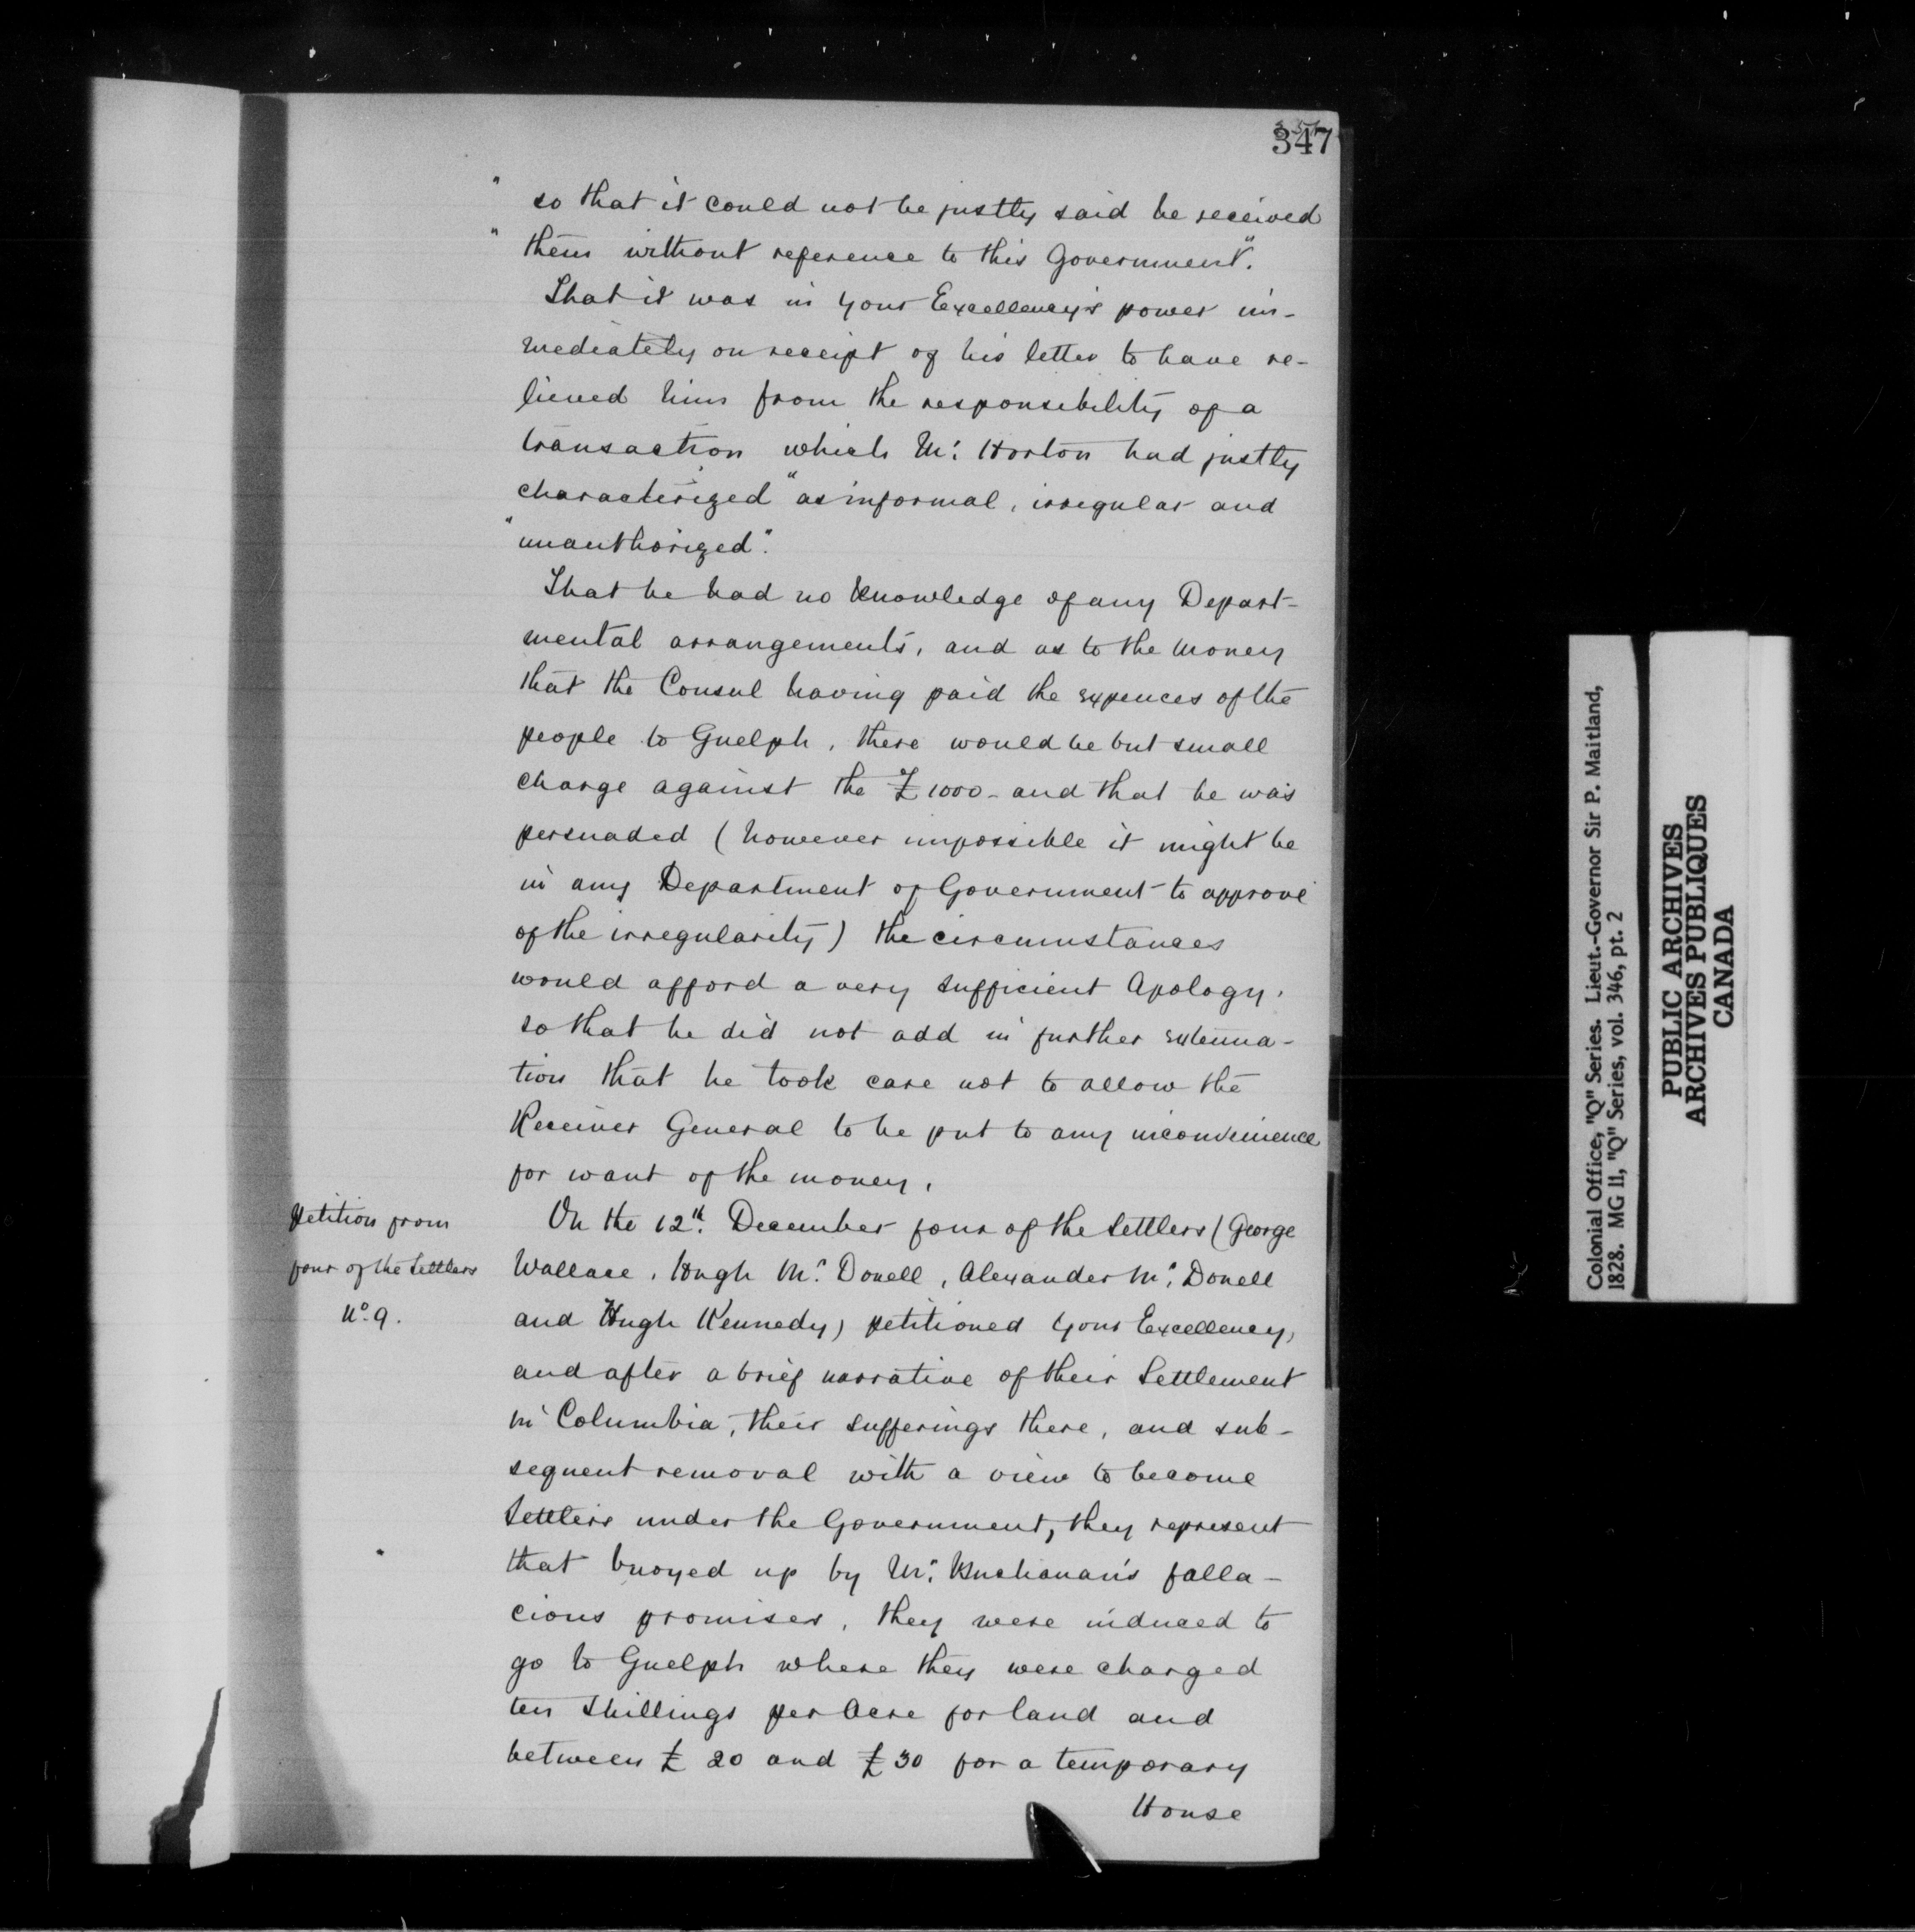 347
" so that it could not be justly said he received
" them without reference to this Government".
That it was in your Excellency's power im-
mediately on receipt of his letter to have re-
lieved him from the responsibility of a
transaction which Mr. Horton had justly
characterized "as informal, irregular and
"unauthorized".
That he had no knowledge of any Depart-
mental arrangements, and as to the money
that the Consul having paid the expences of the
people to Guelph, there would be but small
charge against the £1000 - and that he was
persuaded (however impossible it might be
in any Department of Government to approve
of the irregularity) the circumstances
would afford a very sufficient Apology,
so that he did not add in further extenua-
tion that he took care not to allow the
Receiver General to be put to any inconvenience
for want of the money.
Petition from
four of the Settlers
No. 9.
On the 12th. December four of the Settlers (George
Wallace, Hugh Mc. Donell, Alexander Mc. Donell
and Hugh Kennedy) petitioned your Excellency,
and after a brief narrative of their Settlement
in Columbia, their sufferings there, and sub-
sequent removal with a view to become
Settlers under the Government, they represent
that buoyed up by Mr. Buchanan's falla-
cious promises, they were induced to
go to Guelph where they were charged
ten shillings per Acre for land and
between £20 and £30 for a temporary
House
Colonial Office, "Q" Series. Lieut.-Governor Sir P. Maitland,
1828. MG 11, "Q" Series, vol. 346, pt. 2
PUBLIC ARCHIVES
ARCHIVES PUBLIQUES
CANADA